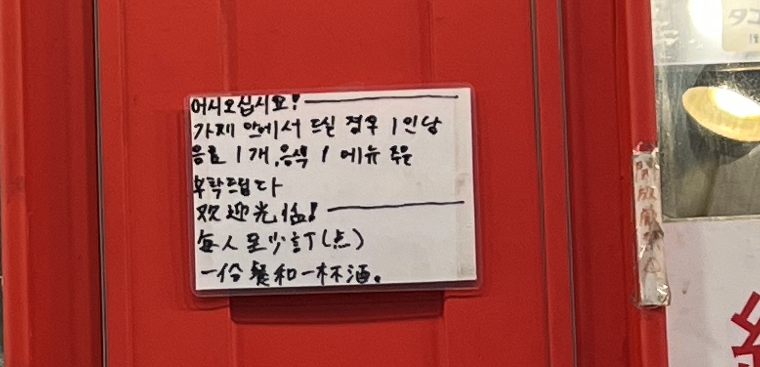 어시오십시요!
가제 안에서 드실 경우 1인당
음료 1개, 음식 1 메뉴 주문
부탁드립니다
欢迎光临!
每人至少訂(点)
一份餐和一杯酒。
タコ